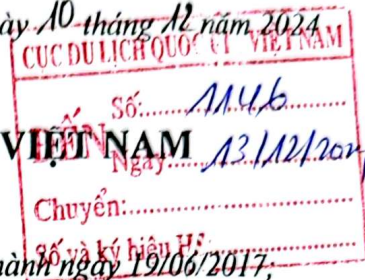 ày 10 tháng 12 năm 2024
CỤC DU LỊCH QUỐC GIA VIỆT NAM
Số: 1146
VIỆT NAM
ĐẾN
Ngày: 13/12/202
Chuyển:
Số và ký hiệu HS:
hành ngày 19/06/2017;